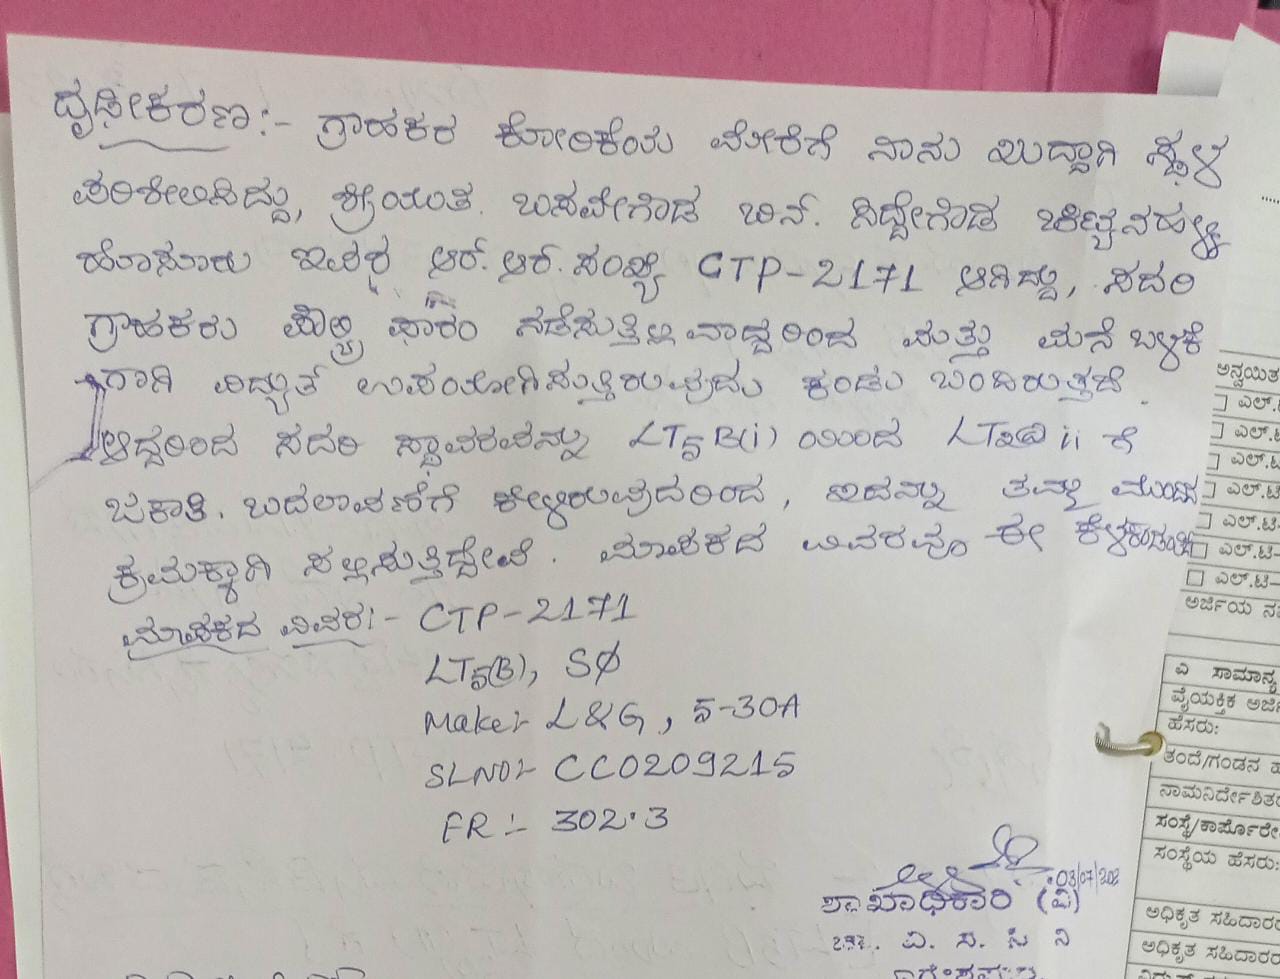 ದೃಢೀಕರಣ:- ಗ್ರಾಹಕರ ಕೋರಿಕೆಯ ಮೇರೆಗೆ ನಾನು ಖುದ್ದಾಗಿ ಸ್ಥಳ
ಪರಿಶೀಲಿಸಿದ್ದು, ಶ್ರೀಯುತ. ಬಸವೇಗೌಡ ಬಿನ್. ಸಿದ್ದೇಗೌಡ
ಹೊಸೂರು ಇವರ ಆರ್.ಆರ್.ಸಂಖ್ಯೆ CTP-2171 ಆಗಿದ್ದು, ಸದರಿ
ಗ್ರಾಹಕರು ಪೌಲ್ಟ್ರಿ ಫಾರಂ ನಡೆಸುತ್ತಿಲ್ಲವಾದ್ದರಿಂದ ಮತ್ತು ಮನೆ ಬಳಕೆ
ಗಾಗಿ ವಿದ್ಯುತ್ ಉಪಯೋಗಿಸುತ್ತಿರುವುದು ಕಂಡು ಬಂದಿರುತ್ತದೆ.
ಆದ್ದರಿಂದ ಸದರಿ ಸ್ಥಾವರವನ್ನು LT5 B(i) ಯಿಂದ ii ಗೆ
ಜಕಾತಿ. ಬದಲಾವಣೆಗೆ ಕೇಳಿರುವುದರಿಂದ, ಇದನ್ನು ತಮ್ಮ ಮುಂದಿನ
ಕ್ರಮಕ್ಕಾಗಿ ಸಲ್ಲಿಸುತ್ತಿದ್ದೇವೆ. ಮಾಪಕದ ವಿವರವು ಈ ಕೆಳಕಂಡಂತಿದೆ
ಮಾಪಕದ ವಿವರ:- CTP-2171
LT5(B), SØ
Make:- L&G, 5-30A
SLNO:- CC0209215
FR:- 302.3
03/07/202
ಶಾಖಾಧಿಕಾರಿ (ವಿ)
ವಿ. ಸ. ನಿ
ಅನ್ವಯಿತ
□ ಎಲ್.ಟಿ
□ ಎಲ್.ಟಿ
□ ಎಲ್.ಟಿ
□ ಎಲ್.ಟಿ
□ ಎಲ್.ಟಿ-
□ ಎಲ್.ಟಿ-
□ ಎಲ್.ಟಿ-
ಅರ್ಜಿಯ ನ
ಎ ಸಾಮಾನ್ಯ
ವೈಯಕ್ತಿಕ ಅರ್ಜಿ
ಹೆಸರು:
ತಂದೆ/ಗಂಡನ ಹ
ನಾಮನಿರ್ದೇಶಿತ
ಸಂಸ್ಥೆ/ಕಾರ್ಪೊರೇ
ಸಂಸ್ಥೆಯ ಹೆಸರು:
ಅಧಿಕೃತ ಸಹಿದಾರರ
ಅಧಿಕೃತ ಸಹಿದಾರ